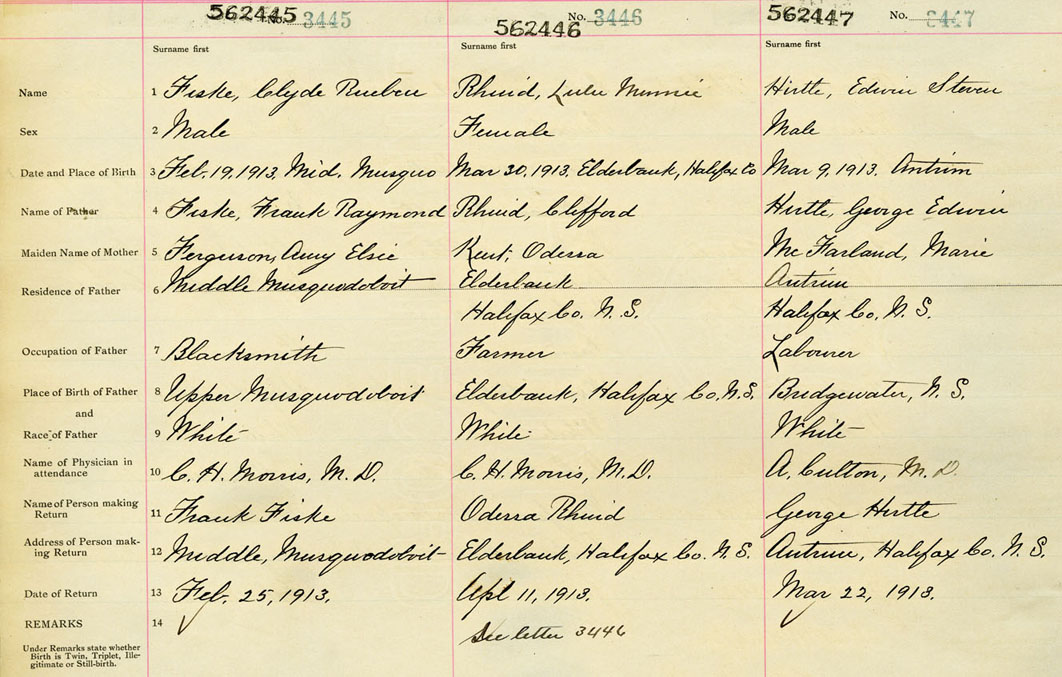 562445 No. 3445 562446 No. 3446 562447 No. 3447
Surname first Surname first Surname first
Name 1 Fiske, Clyde Rueben Rhuid, Lulu Minnie Hirtle, Edwin Steven
Sex 2 Male Female Male
Date and Place of Birth 3 Feb. 19, 1913, Mid. Musquo Mar 30, 1913, Elderbank, Halifax Co Mar 9, 1913, Antrim
Name of Father 4 Fiske, Frank Raymond Rhuid, Clifford Hirtle, George Edwin
Maiden Name of Mother 5 Ferguson, Amy Elsie Kent, Odessa Mc Farland, Marie
Residence of Father 6 Middle Musquodoboit Elderbank Antrim
Halifax Co. N. S. Halifax Co. N. S.
Occupation of Father 7 Blacksmith Farmer Labourer
Place of Birth of Father 8 Upper Musquodoboit Elderbank, Halifax Co. N.S. Bridgewater, N. S.
and
Race of Father 9 White White White
Name of Physician in
attendance 10 C. H. Morris, M. D. C. H. Morris, M. D. A. Culton, M. D.
Name of Person making
Return 11 Frank Fiske Odessa Rhuid George Hirtle
Address of Person mak-
ing Return 12 Middle, Musquodoboit Elderbank, Halifax Co. N. S. Antrim, Halifax Co. N. S.
Date of Return 13 Feb. 25, 1913. Apl 11, 1913. Mar 22, 1913.
REMARKS 14 See letter 3446
Under Remarks state whether
Birth is Twin, Triplet, Ille-
gitimate or Still-birth.